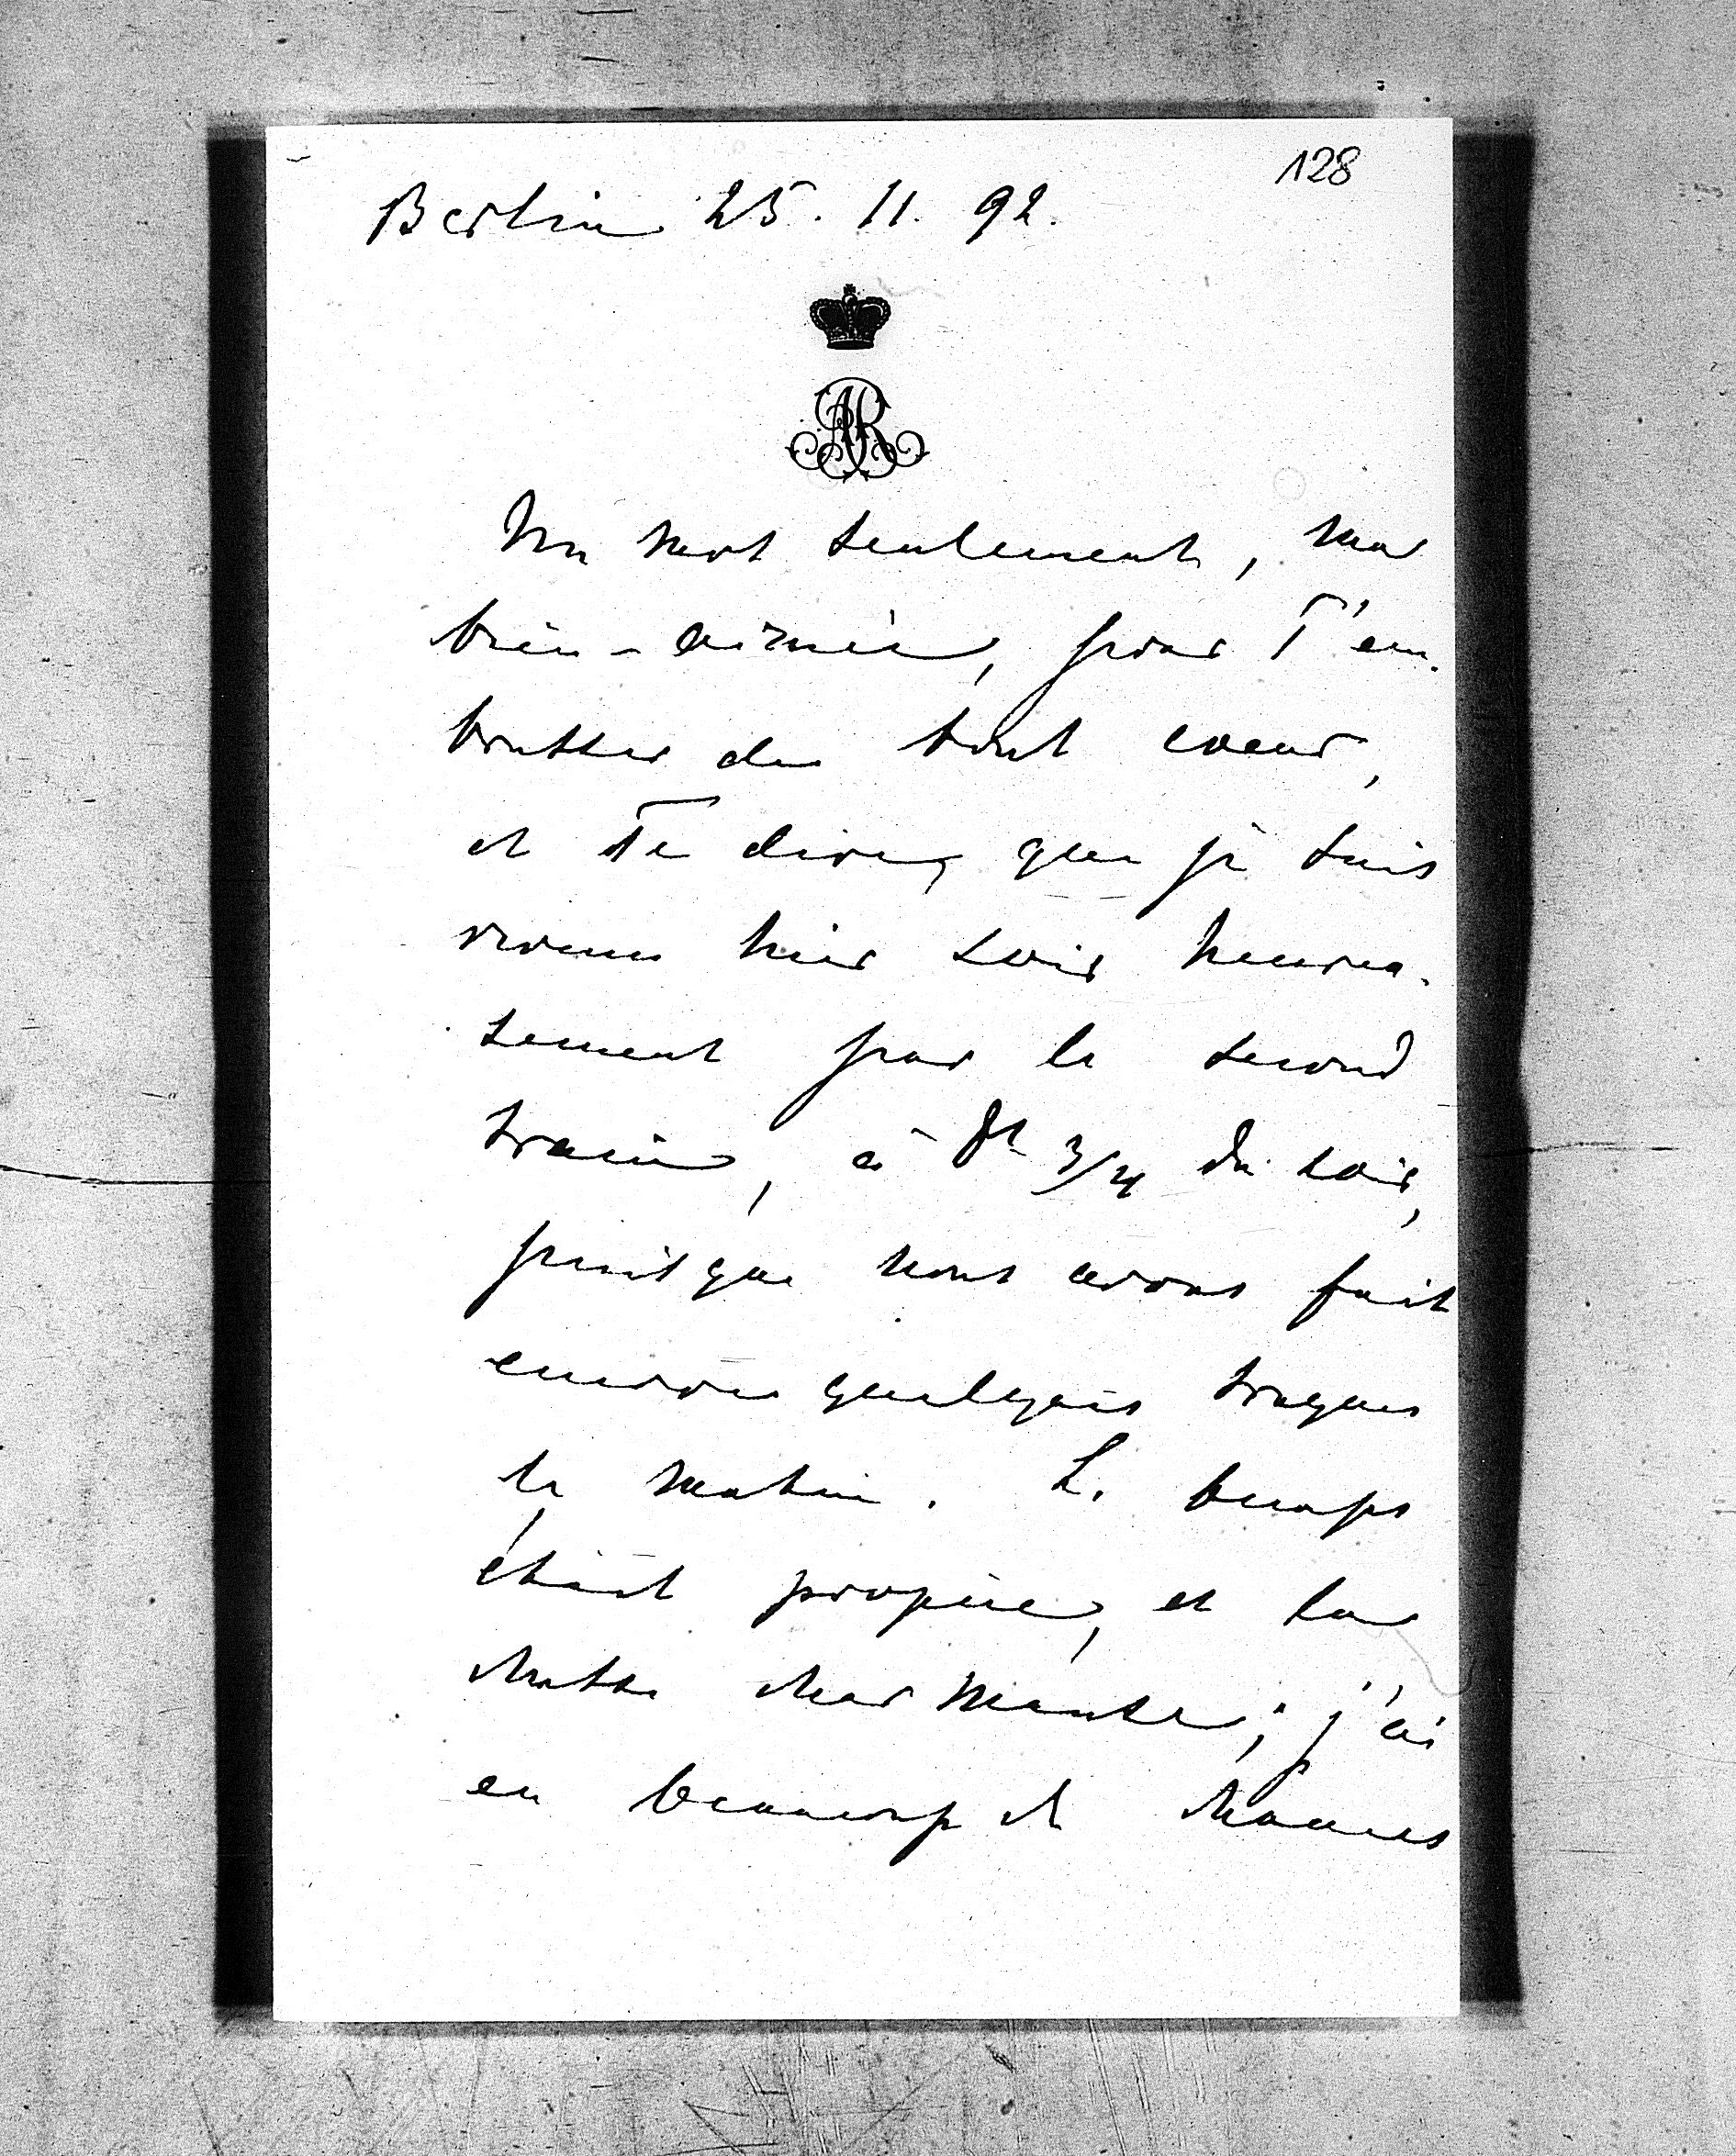 128
Berlin 25. 11. 92.
AR
Un mot seulement, ma
bien-aimée, pour T'em-
brasser de tout coeur,
et Te dire, que je suis
revenu hier soir heureu-
sement par le second
train, à 8h 3/4 du soir,
puisque nous avons fait
encore quelques traques
le matin. Le temps
était propice, et la
chasse charmante; j'ai
eu beaucoup de chances